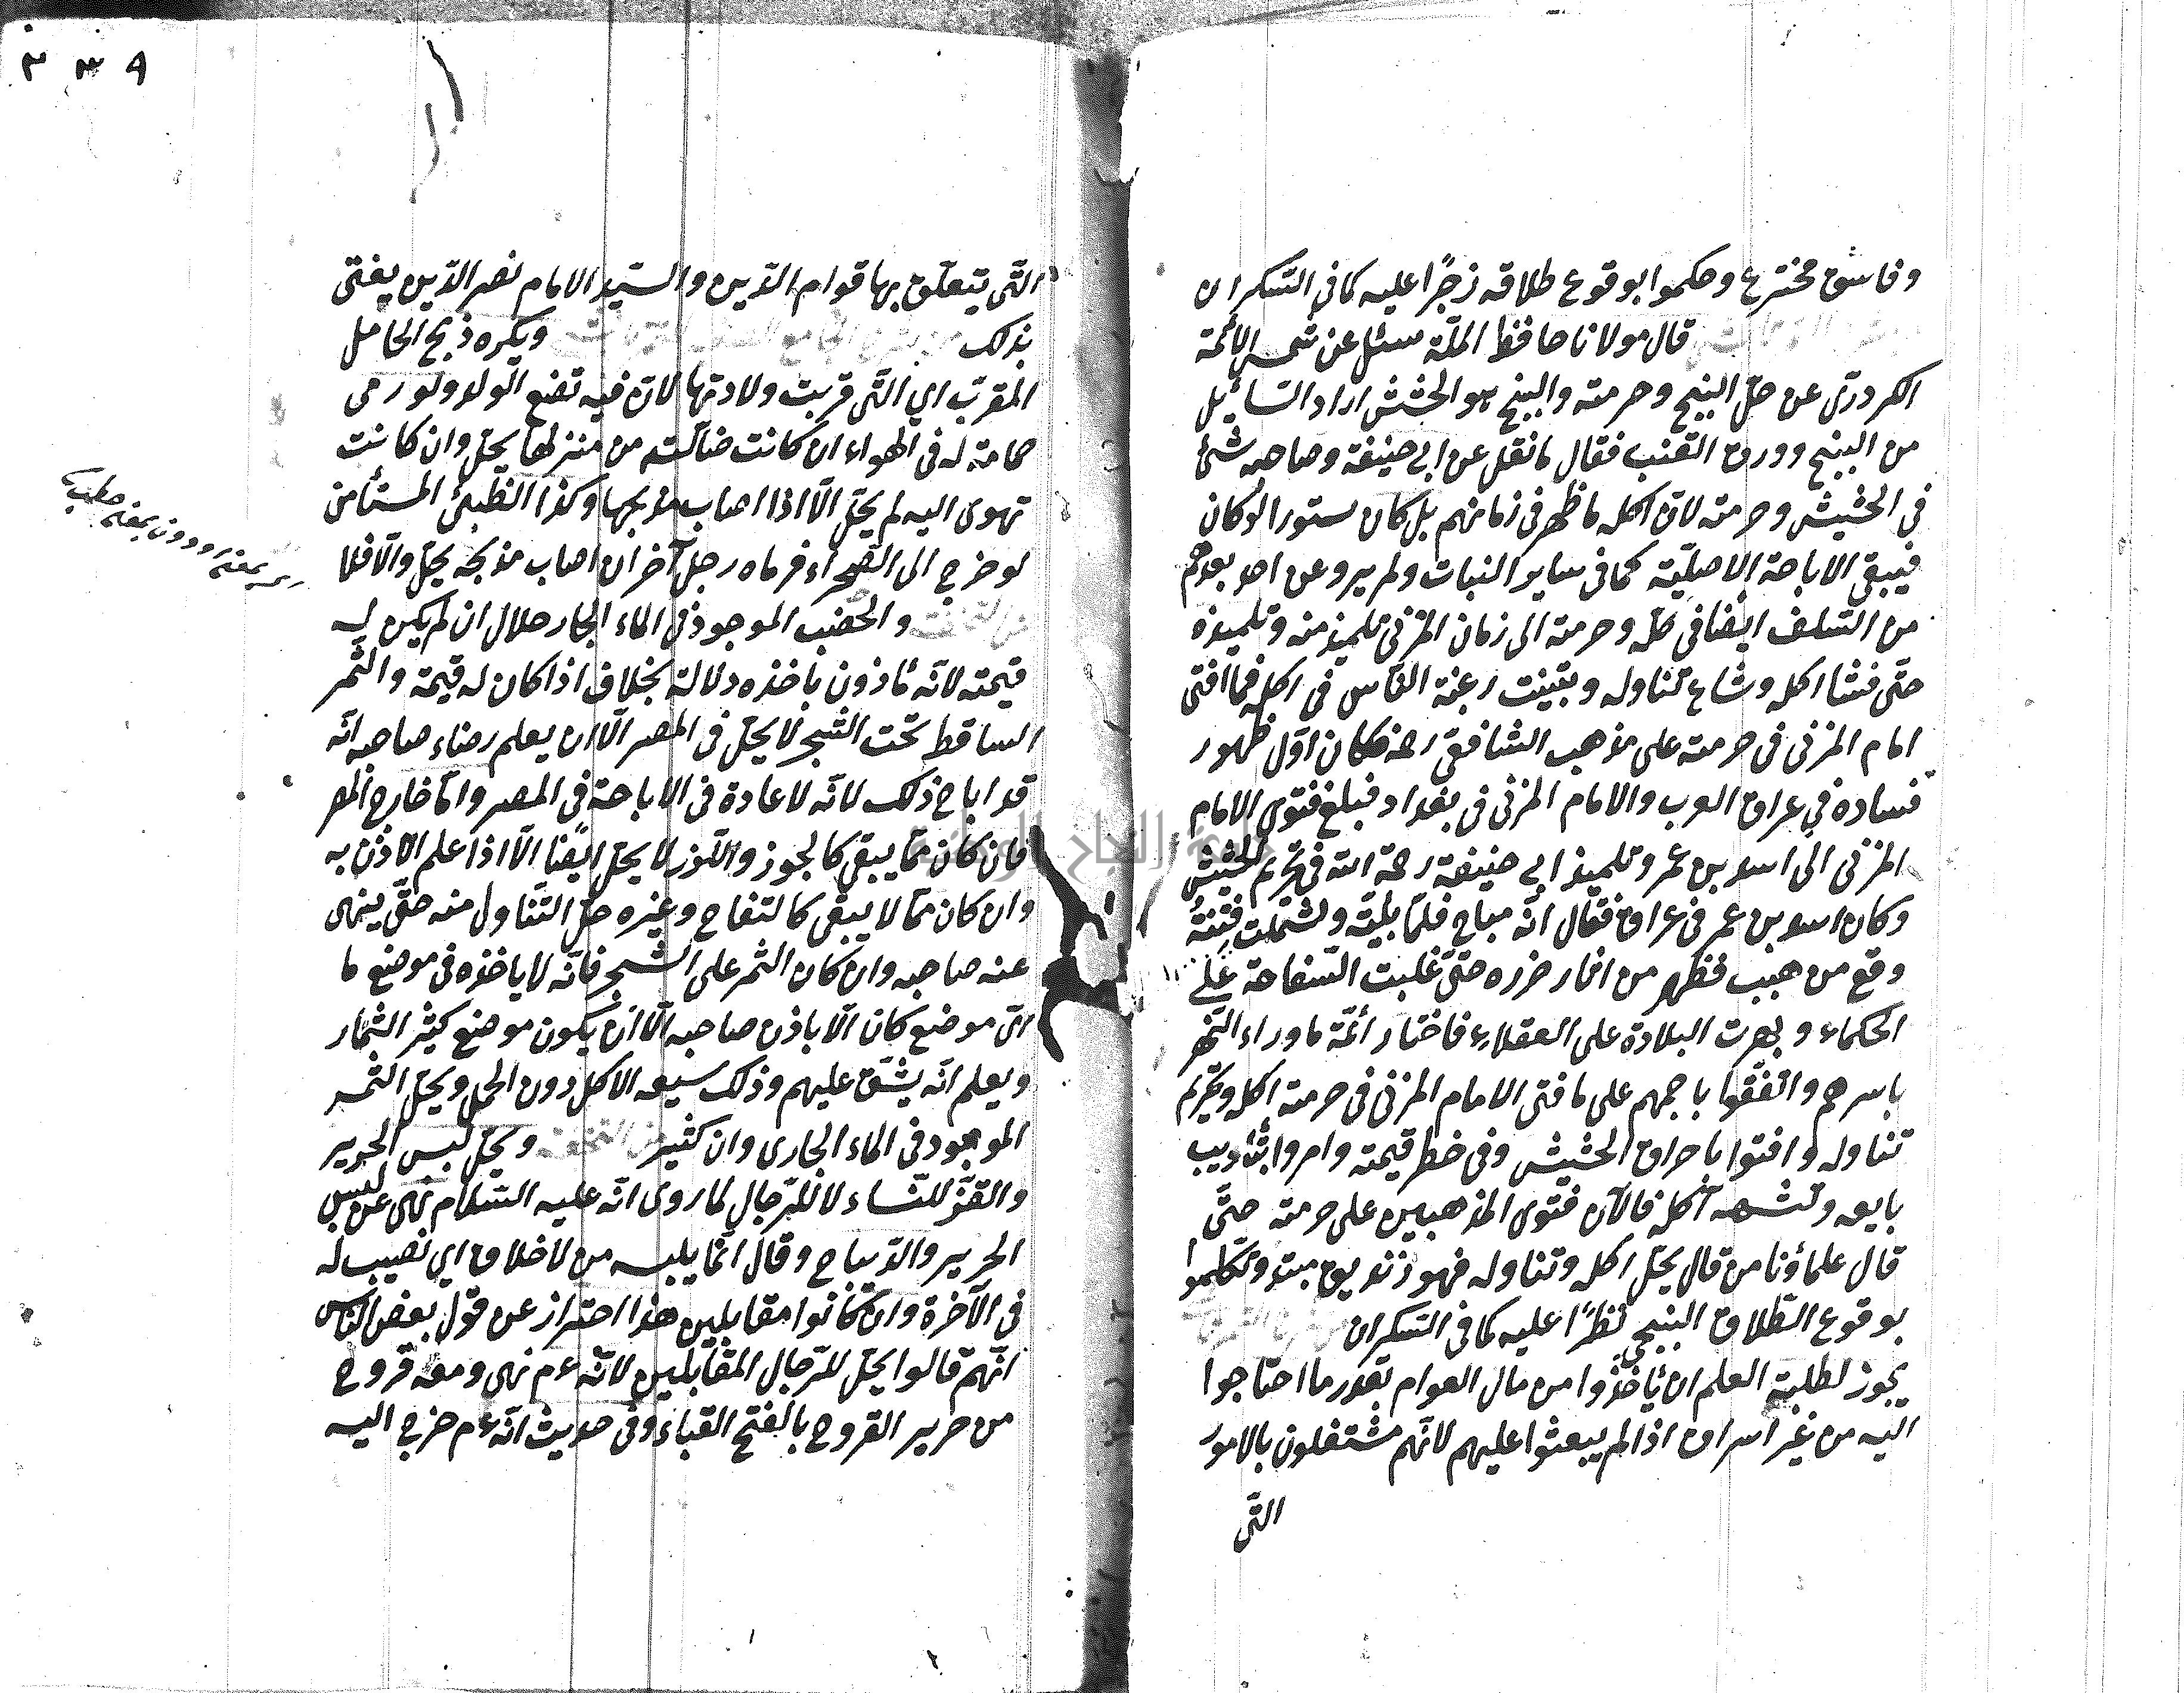 وفاسق مخترع وحكموا بوقوع طلاقه زجرًا عليه كما في السّكران
قال مولانا حافظ الملّة سئل عن شمس الائمّة
الكردرّى عن حلّ البنج وحرمته والبنج هو الحشش اراد السّائيل
من البنج وورق القنب فقال ما نقل عن ابي حنيفة وصاحبه شئ
فى الحشيش وحرمته لانّ اكله ما ظهر فى زمانهم بل كان ستورا لو كان
فيبقى الاباحة الاصليّة كما فى ساير النبات ولم يرو عن احد بعدهم
من السّلف ايضا فى حلّه وحرمته الى زمان المزنى تلميذ منه وتلميذه
حتّى فشا اكله وشاع تناوله وتبيّنت رغبة النّاس فى اكله فما افتى
امام المزنى فى حرمته على مذهب الشافعى رحمه فكان اوّل ظهور
فساده في عراق العرب والامام المزنى فى بغداد فبلغ فتوى الامام
المزنى الى اسد بن عمرو تلميذ ابى حنيفة رحمة الله فى تحريم الحشيش
وكان اسد بن عمر فى عراق فقال انّه مباح فلمّا بليّة وشملت فتنتُه
وقع من هبب فظهر من اثار ضرره حتّى غلبت السّفاحة على
الحكماء وبهرت البلادة على العقلاء فاختار ائمّة ما وراء النّهر
باسرهم واتّفقوا باجمعهم على ما فتى الامام المزنى فى حرمة اكله وتحريم
تناوله وافتوا باحراق الحشيش وفى خطر قيمته وامروا بتأديب
بايعه وتشهد آكله فالآن فتوى المذهبين على حرمته حتّى
قال علماؤنا من قال يحلّ اكله وتناوله فهو زنديق مبتدع وتكلموا
بوقوع الطّلاق البنجى نظرًا عليه كما فى السّكران
يجوز لطلبة العلم ان يأخذوا من مال العوام بقدر ما احتاجوا
اليه من غير اسراف اذا لم يبعثوا عليهم لانّهم مشتغلون بالامور
التّى
٣ ٣ ٩
التّى يتعلّق بها قوام الدّين والسّيد الامام نصر الدّين يفتى
بذلك ويكره ذبح الحامل
المقرّب اي التّى قربت ولادتها لانّ فيه تضيع الولد ولو رمى
حمامة له فى الهواء ان كانت ضالّته من منزلها يحلّ وان كانت
تهوى اليه لم يحلّ الّا اذا اصاب مذبحها وكذا الظّبىُ المستأمن
لو خرج الى الصّحراء فرماه رجل آخر ان اصاب مذبحه يحلّ والّا فلا
والحضب الموجود فى الماء الجار حلال ان لم يكن له
قيمته لانّه مأذون باخذه دلالة بخلاف اذا كان له قيمة والثّمر
الساقط تحت الشّجر لا يحلّ فى المصر الّا ان يعلم رضاء صاحبه انّه
قد اباح ذلك لانّه لا عادة فى الاباحة فى المصر وامّا خارج المصر
فان كان ممّا يبقى كالجوز واللّوز لا يحلّ ايضًا الّا اذا علم الاذن به
وان كان ممّا لا يبقى كالتفاح وغيره حلّ التّناول منه حتّى ينهى
عنه صاحبه وان كان الثمر على الشّجر فانّه لا ياخذه فى موضع ما
اىّ موضع كان الّا باذن صاحبه الّا ان يكون موضع كيثر الثّمار
ويعلم انّه يشقّ عليهم وذلك سيعه الاكل دون الحمل ويحلّ الثّمر
الموجود فى الماء الجارى وان كثير ويحلّ لبس الحرير
والقزّ للنّساء لا للرّجال لما روى انّه عليه السّلام نهى عن لبس
الحرير والدّيباج وقال انّما يلبسه من لا خلاق اي نصيب له
فى الآخرة وان كانوا مقابلين هذا احتراز عن قول بعض النّاس
انّهم قالوا يحلّ للرّجال المقابلين لانّه عم نهى ومعه قروح
من حرير القروح بالفتح القباء وفى حديث انّه عم خرج اليه
جامعة النجاح الوطنية